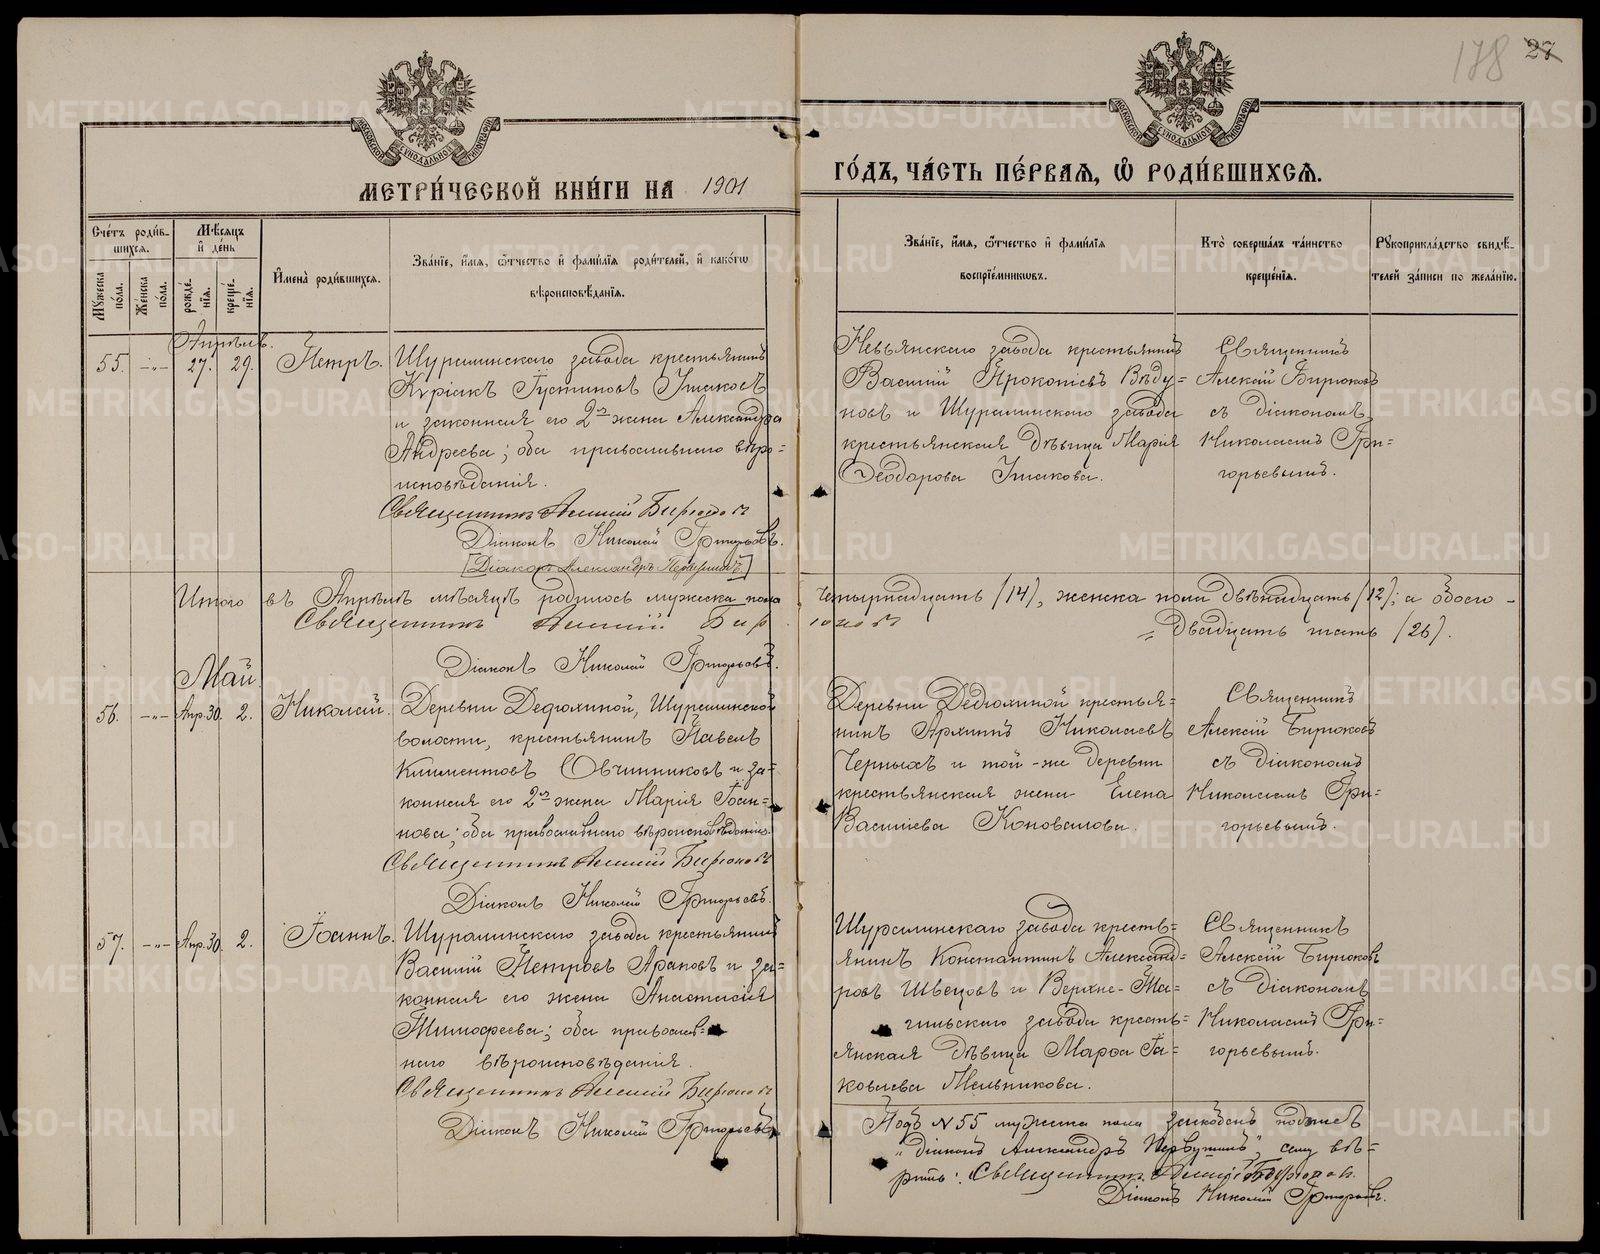 178 27
МОСКОВСКОЙ СѴНОДАЛЬНОЙ ТИПОГРАФІИ
МОСКОВСКОЙ СѴНОДАЛЬНОЙ ТИПОГРАФІИ
МЕТРИ́ЧЕСКОЙ КНИ́ГИ НА 1901
ГО́ДЪ, ЧА́СТЬ ПЕ́РВАѦ, Ѽ РОДИ́ВШИХСѦ.
Сче́тъ роди́в-
шихсѧ.
Мꙋжеска по́ла.
Же́нска по́ла.
Мѣ́сѧцъ
и҆ де́нь
рожде́нїѧ.
креще́нїѧ.
И҆мена̀ роди́вшихсѧ.
Зва́нїе, и҆́мѧ, ѻ҆́тчество и҆ фами́лїѧ роди́телей, и҆ како́гѡ
вѣроисповѣ́данїѧ.
Зва́нїе, и҆́мѧ, ѻ҆́тчество и҆ фами́лїѧ
воспрїе́мникѡвъ.
Кто̀ соверша́лъ та́инство
креще́нїѧ.
Рꙋкоприкла́дство свидѣ́-
телей за́писи по жела́нїю.
Апрѣль.
55. -"- 27. 29. Петръ.
Шуралинскаго завода крестьянинъ
Кѵріакъ Іустиновъ Ушаковъ
и законная его 2ая жена Александра
Андреева; оба православнаго вѣро=
исповѣданія.
Священникъ Алексій Бирюковъ
Діаконъ Николай Григорьевъ.
[Діаконъ Александръ Первушинъ]
Невьянскаго завода крестьянинъ
Василій Прокопіевъ Вѣду=
новъ и Шуралинскаго завода
крестьянская дѣвица Марія
Ѳеодорова Ушакова.
Священникъ
Алексій Бирюковъ
съ діакономъ
Николаемъ Гри=
горьевымъ.
Итого въ Апрѣлѣ мѣсяцѣ родилось мужеска пола четырнадцать (14), женска пола двѣнадцать (12); а обоего -
Священникъ Алексій Бирюковъ = двадцать шесть (26).
Діаконъ Николай Григорьевъ.
Май
56. -"- Апр. 30. 2. Николай.
Деревни Дедюхиной, Шуралинской
волости, крестьянинъ Павелъ
Климентовъ Овчинниковъ и за=
конная его 2ая жена Марія Іоан=
нова; оба православнаго вѣроисповѣданія.
Священникъ Алексій Бирюковъ
Діаконъ Николай Григорьевъ.
Деревни Дедюхиной крестья=
нинъ Архиппъ Николаевъ
Черныхъ и той-же деревни
крестьянская жена Елена
Васильева Коновалова.
Священникъ
Алексій Бирюковъ
съ діакономъ
Николаемъ Гри=
горьевымъ.
57. -"- Апр. 30. 2. Іоаннъ.
Шуралинскаго завода крестьянинъ
Василій Петровъ Араповъ и за=
конная его жена Анастасія
Тимофеева; оба православ=
наго вѣроисповѣданія.
Священникъ Алексій Бирюковъ
Діаконъ Николай Григорьевъ
Шуралинскаго завода кресть=
янинъ Константинъ Александ=
ровъ Швецовъ и Верхне-Та=
гильскаго завода кресть=
янская дѣвица Марѳа Іа=
ковлева Мельникова.
Священникъ
Алексій Бирюковъ
съ діакономъ
Николаемъ Гри=
горьевымъ.
Подъ №55 мужска пола подпись
"діаконъ Александръ Первушинъ", сему вѣ=
рить: Священникъ Алексій Бирюковъ.
Діаконъ Николай Григорьевъ.
METRIKI.GASO-URAL.RU